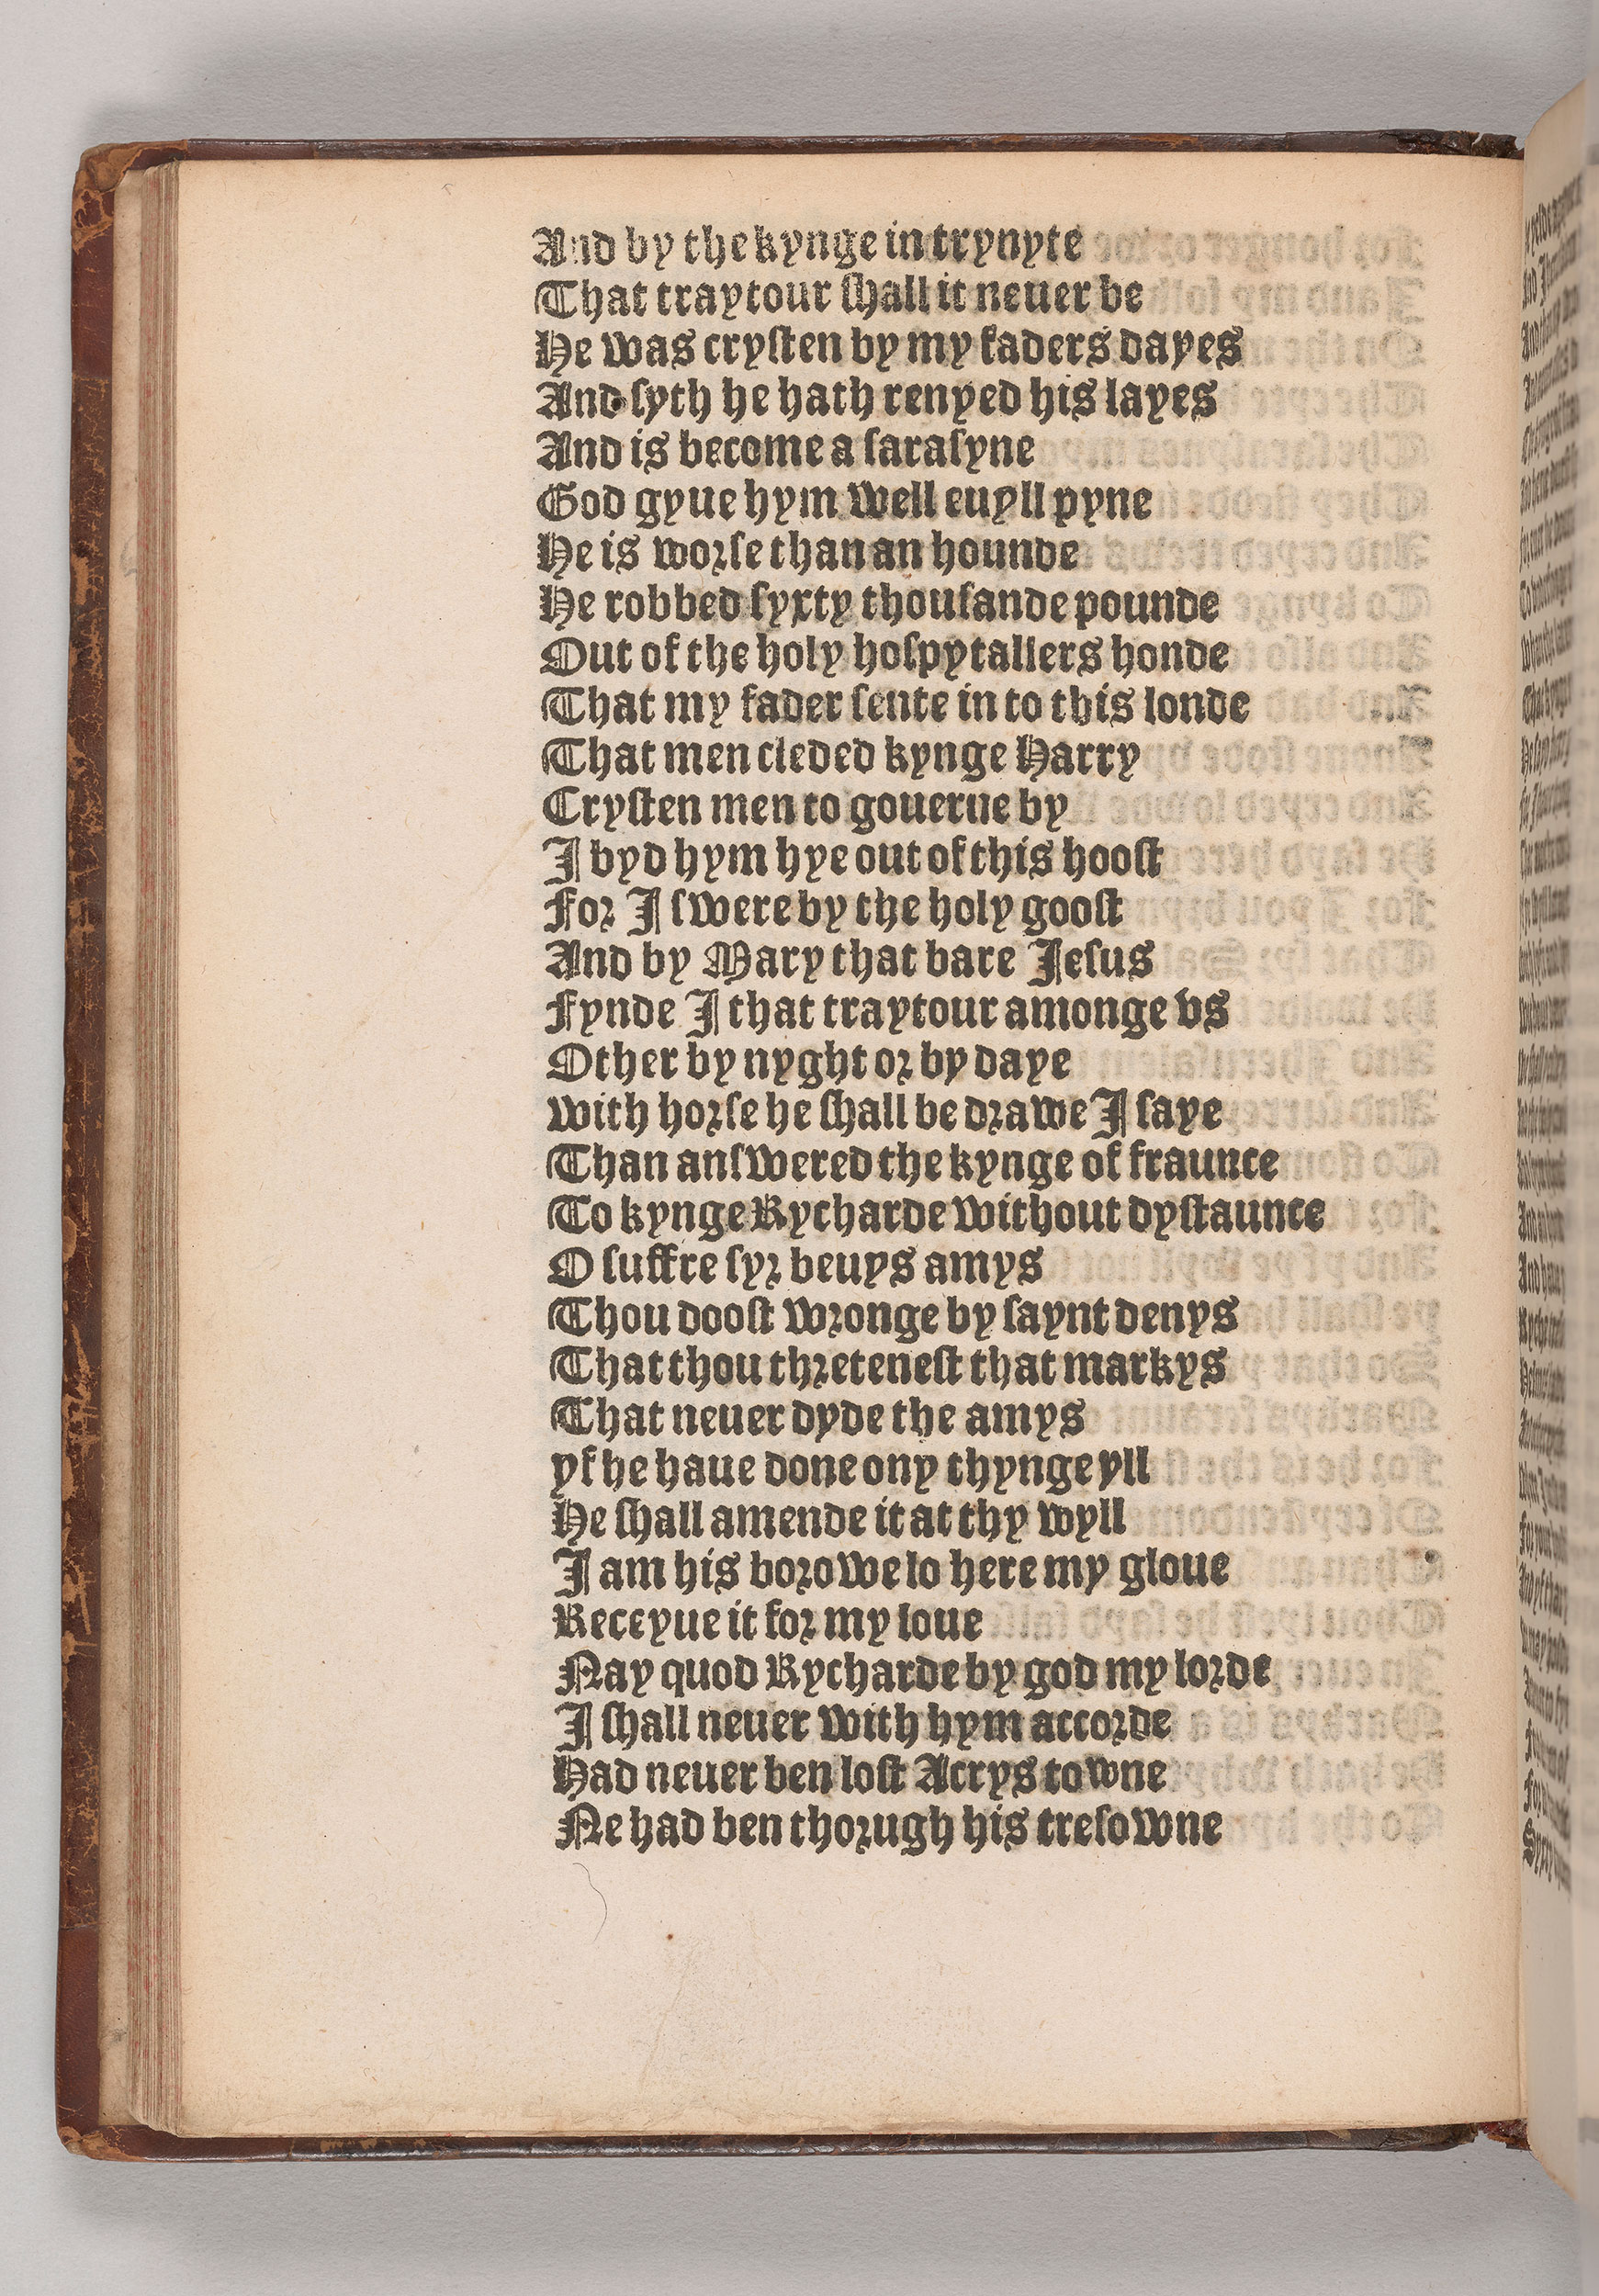 And by the kynge in trynyte
That traytour shall it neuer be
He was crysten by my faders dayes
And syth he hath renyed his layes
And is become a sarasyne
God gyue hym well euyll pyne
He is worse than an hounde
He robbed syxty thousande pounde
Out of the holy hospytallers honde
That my fader sente in to this londe
That men cleded kynge Harry
Crysten men to gouerne by
I byd hym hye out of this hoost
For I swere by the holy goost
And by Mary that bare Jesus
Fynde I that traytour amonge vs
Other by nyght or by daye
with horse he shall be drawe I saye
Than answered the kynge of fraunce
To kynge Rycharde without dystaunce
O suffre syr beuys amys
Thou doost wronge by saynt denys
That thou thretenest that markys
That neuer dyde the amys
yf he haue done ony thynge yll
He shall amende it at thy wyll
I am his borowe lo here my gloue
Receyue it for my loue
Nay quod Rycharde by god my lorde
I shall neuer with hym accorde
Had neuer ben lost Acrys towne
Ne had ben thorugh his tresowne